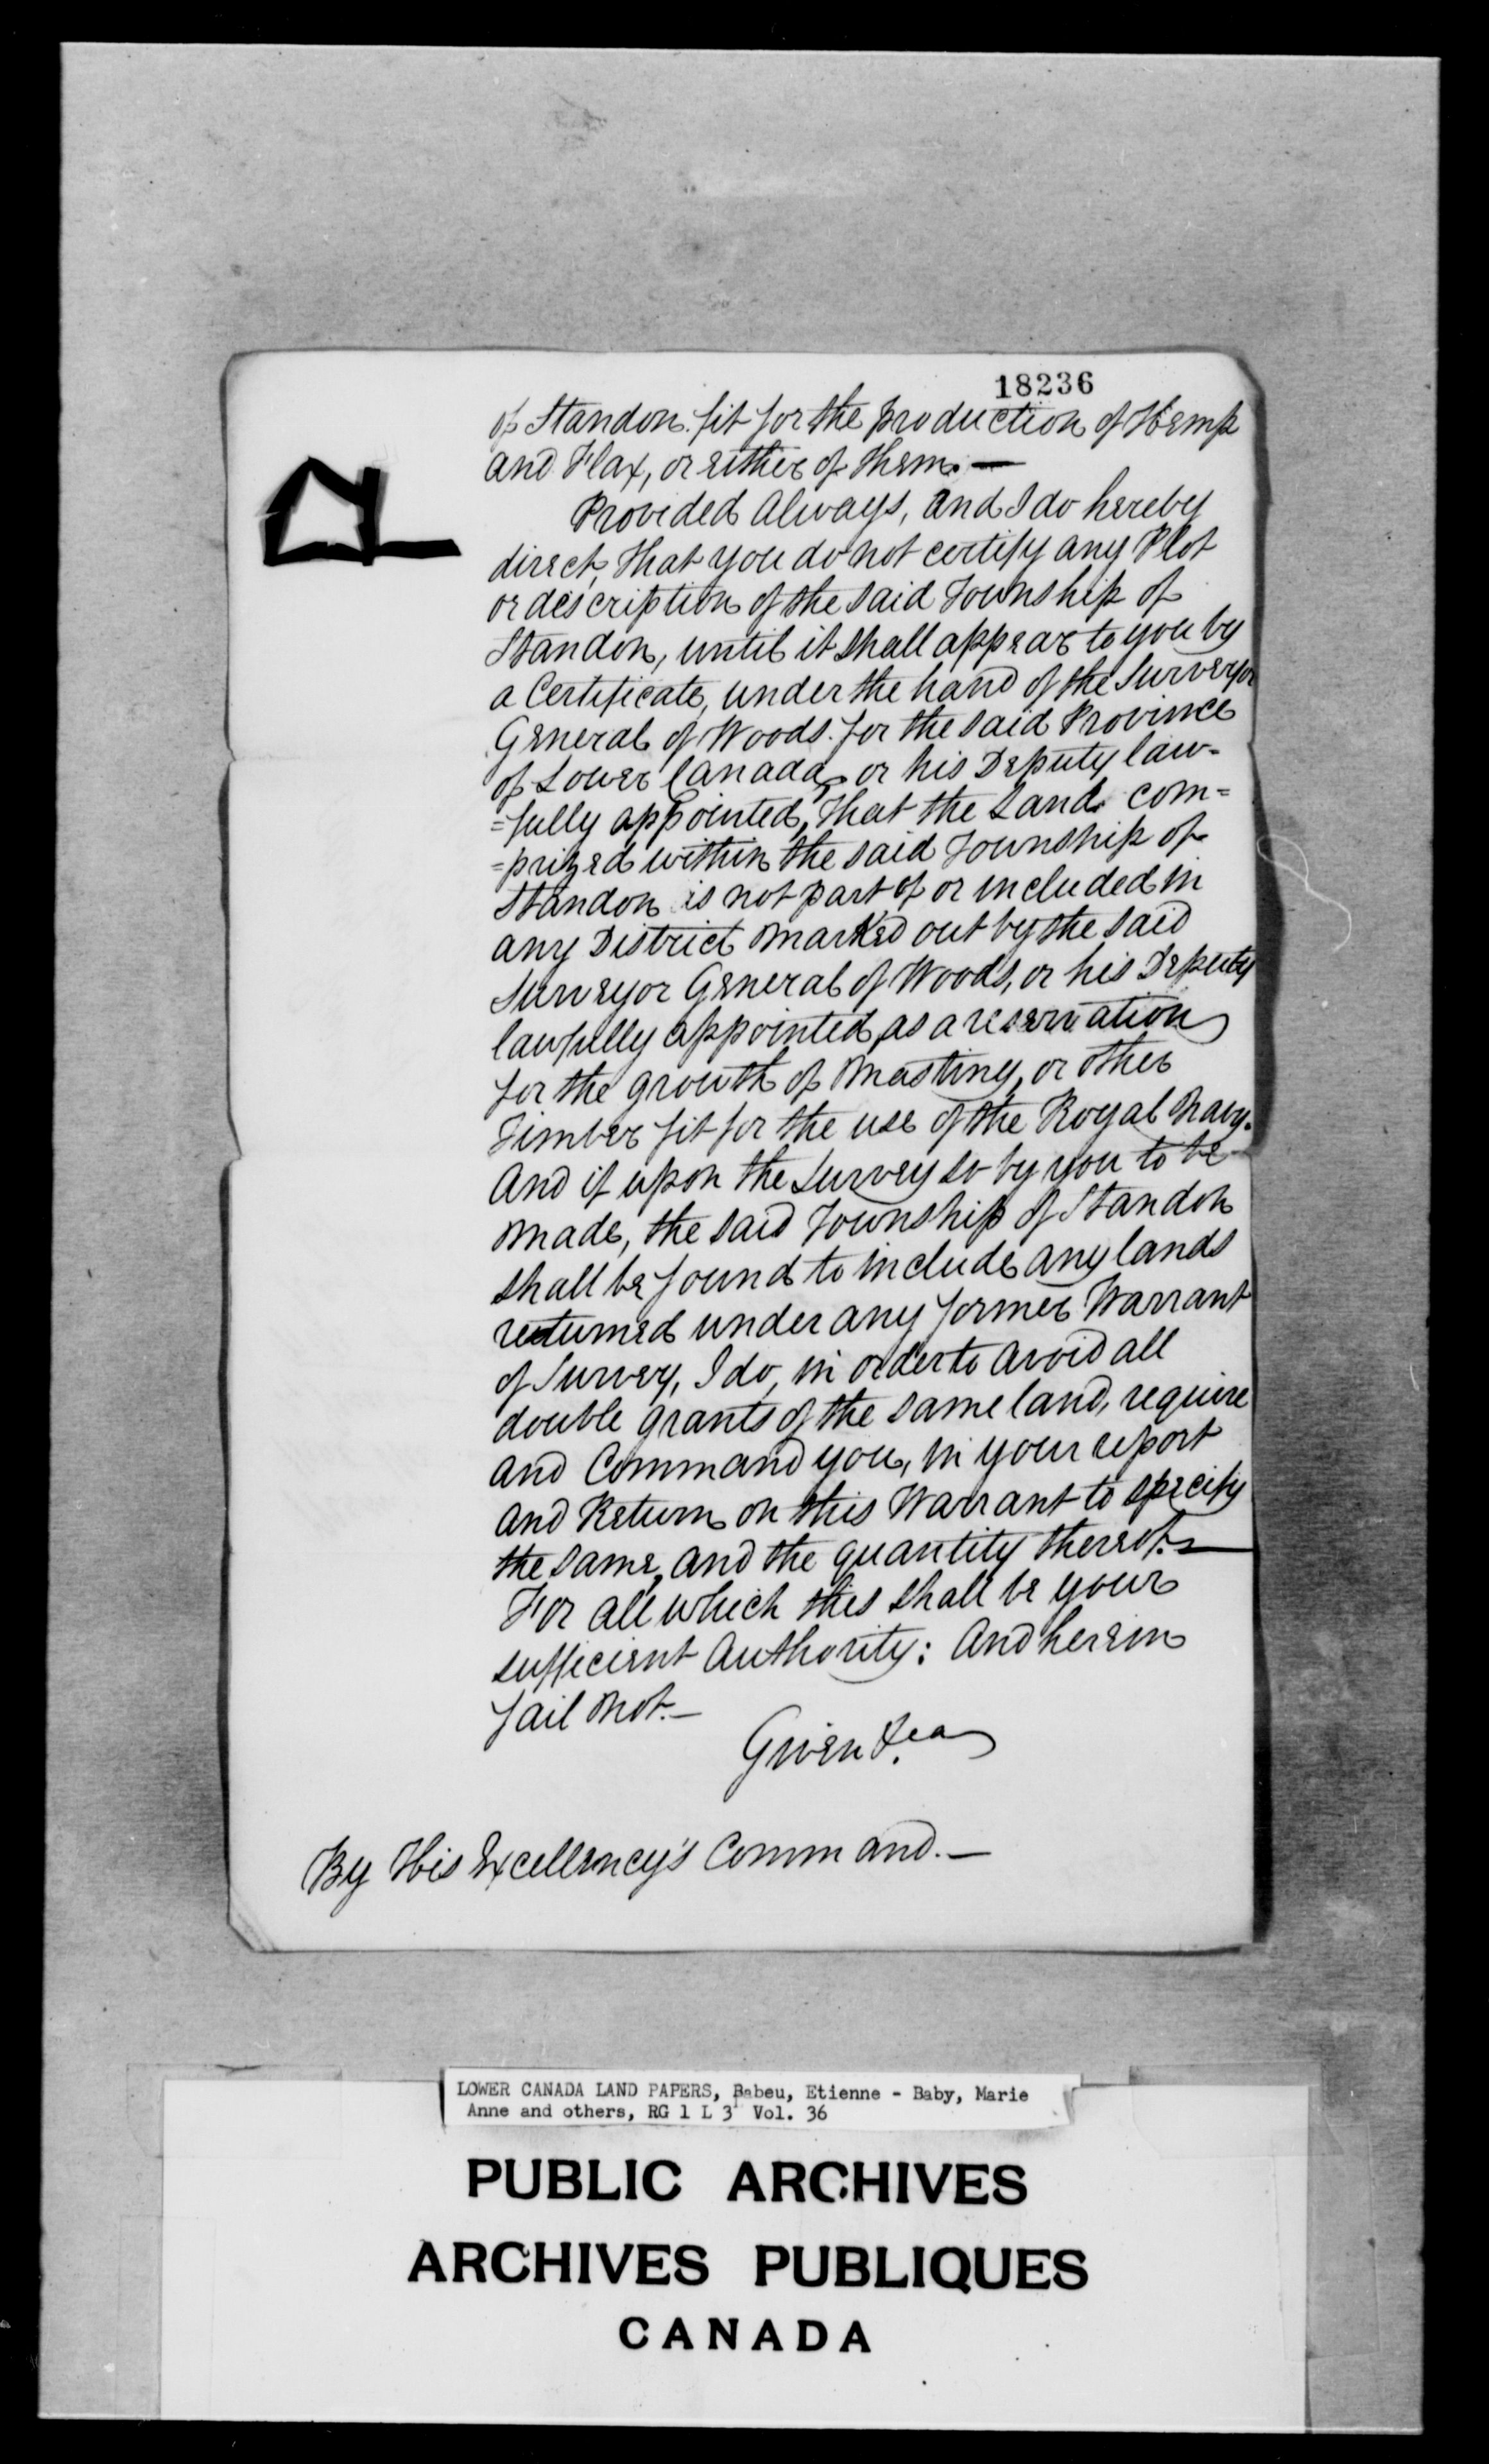 18236
of Standon fit for the production of Hemp
and Flax, or either of them. —
Provided Always, and I do hereby
direct, that you do not certify any Plot
or description of the said Township of
Standon, until it shall appear to you by
a Certificate, under the hand of the Surveyor
General of Woods for the said Province
of Lower Canada, or his Deputy law-
=fully appointed, that the Land com=
=prized within the said Township of
Standon is not part of or included in
any District marked out by the said
Surveyor General of Woods, or his Deputy
lawfully appointed, as a reservation
for the growth of Masting, or other
Timber fit for the use of the Royal Navy.
And if upon the Survey so by you to be
made, the said Township of Standon
shall be found to include any lands
returned under any former Warrant
of Survey, I do, in order to avoid all
double grants of the same land, require
and Command you, in your report
and Return on this Warrant to specify
the same, and the quantity thereof. —
For all which this shall be your
sufficient Authority: And herein
fail not. —
Given &ca
By His Excellency's Command. —
LOWER CANADA LAND PAPERS, Babeu, Etienne - Baby, Marie
Anne and others, RG 1 L 3 Vol. 36
PUBLIC ARCHIVES
ARCHIVES PUBLIQUES
CANADA